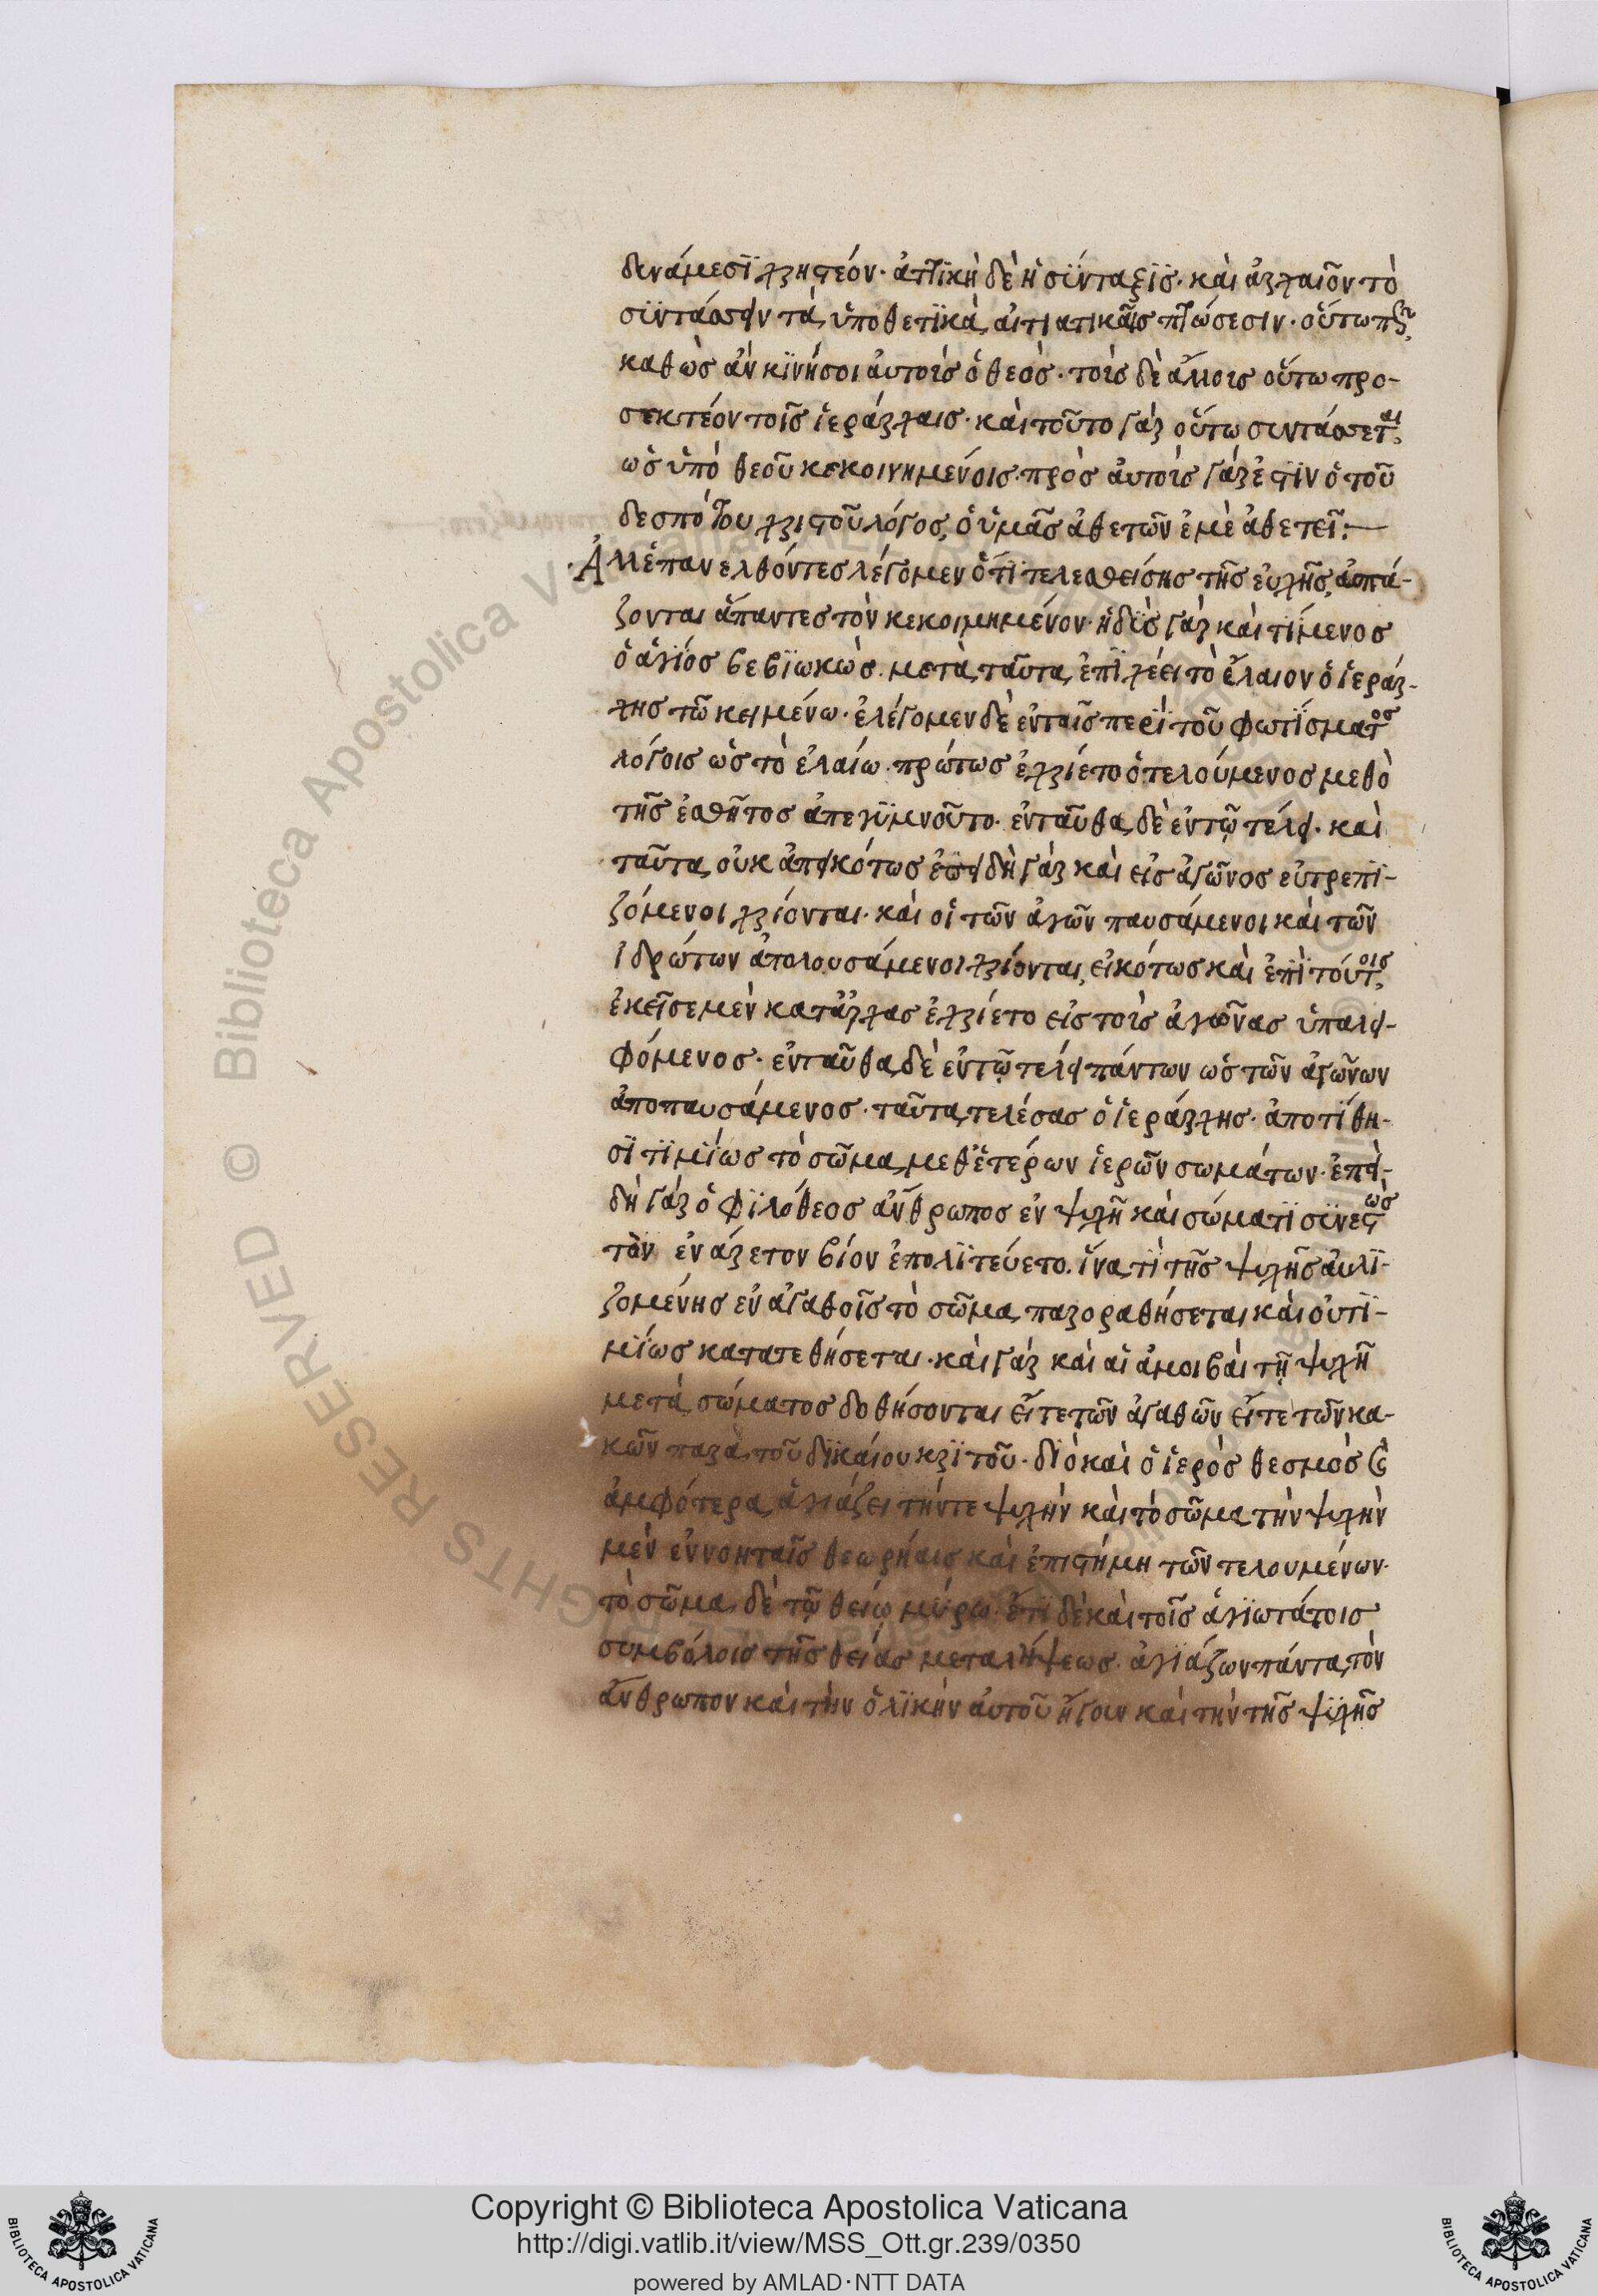 δυνάμεσϊ χρηστέον· ἀττϊκὴ δὲ ἡ σΐνταξϊς· καὶ ἀρχαῖον τὸ
σϊντάσσειν τὰ ὑποθετϊκὰ αἰτιατικαῖς πτώσεσιν· οὕτω
καθὼς ἀν κϊνήσοι ἀυτοὶς ὁ θεὸς· τοὶς δὲ ἄλλοις οὕτω προ-
σεκτέον τοῖς ἱεράρχαις· καὶ τοῦτο γὰρ οὕτω συντάσσεται
ὡς ὑπὸ θεοῦ κεκοινημένοις· πρὸς ἀυτοὶς γάρ ἐστϊν ὁ τοῦ
δεσπότου χριστοῦ λόγος, ὁ ὑμᾶς ἀθετῶν ἐμὲ ἀθετεῖ:
Ἀλλ ἐπανελθόντες λέγομεν ὅτϊ τελεσθείσης τῆς εὐχῆς, ἀσπά-
ζονται ἅπαντες τὸν κεκοιμημένον· ἡδῒς γὰρ καὶ τίμενος
ὁ ἁγΐος βεβϊωκὼς. μετὰ ταῦτα ἐπϊχέει τὸ ἔλαιον ὁ ἱεράρ-
χης τῶ κειμένω· ἐλέγομεν δὲ ἐν ταῖς περῒ τοῦ φωτΐσματος
λόγοις ὡς τὸ ἐλαίω πρώτως ἐχρίετο ὁ τελούμενος μεθὸ
τῆς ἐσθῆτος ἀπεγϋμνοῦτο· ἐνταῦθα δὲ ἐν τῷ τέλει· καὶ
ταῦτα οὐκ ἀπεικότως ἐπειδὴ γὰρ καὶ εἰς ἀγῶνος εὐτρεπϊ-
ζόμενοι χρίονται· καὶ οἱ τῶν ἀγῶν παυσάμενοι καὶ τῶν
ἱδρώτων ἀπολουσάμενοι χρίονται, εἰκότως καὶ ἐπῒ τούτοις
ἐκεῖσε μὲν κατ ἀρχας ἐχρίετο εἰς τοὶς ἀγῶνας ὑπαλει-
φόμενος· ἐνταῦθα δὲ ἐν τῷ τέλει πάντων ὡς τῶν ἀγώνων
ἀποπαυσάμενος· ταῦτα τελέσας ὁ ἱεράρχης· ἀποτΐθη-
σϊ τϊμΐως τὸ σῶμα μεθ ἑτέρων ἱερῶν σωμάτων· ἐπει-
δὴ γὰρ ὁ φϊλόθεος ἄνθρωπος ἐν ψυχῆ καὶ σώματϊ σϊνετῶς
τὸν ἐνάρετον βίον ἐπολϊτεύετο. ἵνα τῒ τῆς ψυχῆς ἀυλϊ-
ζομένης ἐν ἀγαθοῖς τὸ σῶμα παροραθήσεται καὶ οὐ τϊ-
μΐως κατατεθήσεται· καὶ γὰρ καὶ αἱ ἀμοιβαὶ τῇ ψυχῆ
μετὰ σώματος δοθήσονται εἴτε τῶν ἀγαθῶν εἴτε τῶν κα-
κῶν παρὰ τοῦ δϊκαίου κρϊτοῦ· δϊὸ καὶ ὁ ἱερὸς θεσμὸς
ἀμφότερα ἁγιάζει τήν τε ψυχὴν καὶ τὸ σῶμα τὴν ψυχὴν
μὲν ἐν νοηταῖς θεωρήαις καὶ ἐπιστήμη τῶν τελουμένων·
τὸ σῶμα δὲ τῷ θείῳ μύρω· ἔτϊ δὲ καὶ τοῖς ἁγϊωτάτοις
συμβόλοις τῆς θείας μεταλήψεως. ἁγϊάζων πάντα τὸν
ἄνθρωπον καὶ τὴν ὁλϊκὴν ἀυτοῦ ἤγουν καὶ τὴν τῆς ψϋχῆς
Copyright © Biblioteca Apostolica Vaticana
http://digi.vatlib.it/view/MSS_Ott.gr.239/0350
powered by AMLAD·NTT DATA